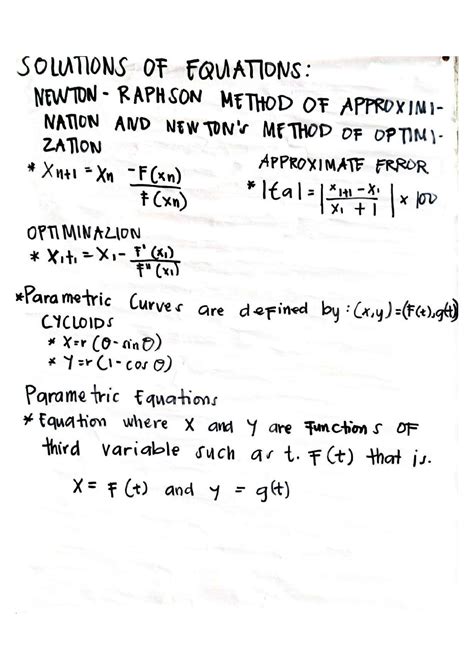 SOLUTIONS OF EQUATIONS:
NEWTON - RAPHSON METHOD OF APPROXIMI-
NATION AND NEWTON'S METHOD OF OPTIMI-
ZATION
* Xn+1 = Xn -F(xn) / F(xn)
APPROXIMATE ERROR
* |Ea| = | x1+1 - x1 / x1 + 1 | × 100
OPTIMINAZION
* X1+1 = X1 - F'(x1) / F"(x1)
*Parametric Curves are defined by : (x,y)=(F(t),g(t))
CYCLOIDS
* X=r (θ-sinθ)
* Y=r (1-cos θ)
Parametric Equations
* Equation where X and Y are Functions OF
third variable such as t. F(t) that is.
X = F(t) and y = g(t)